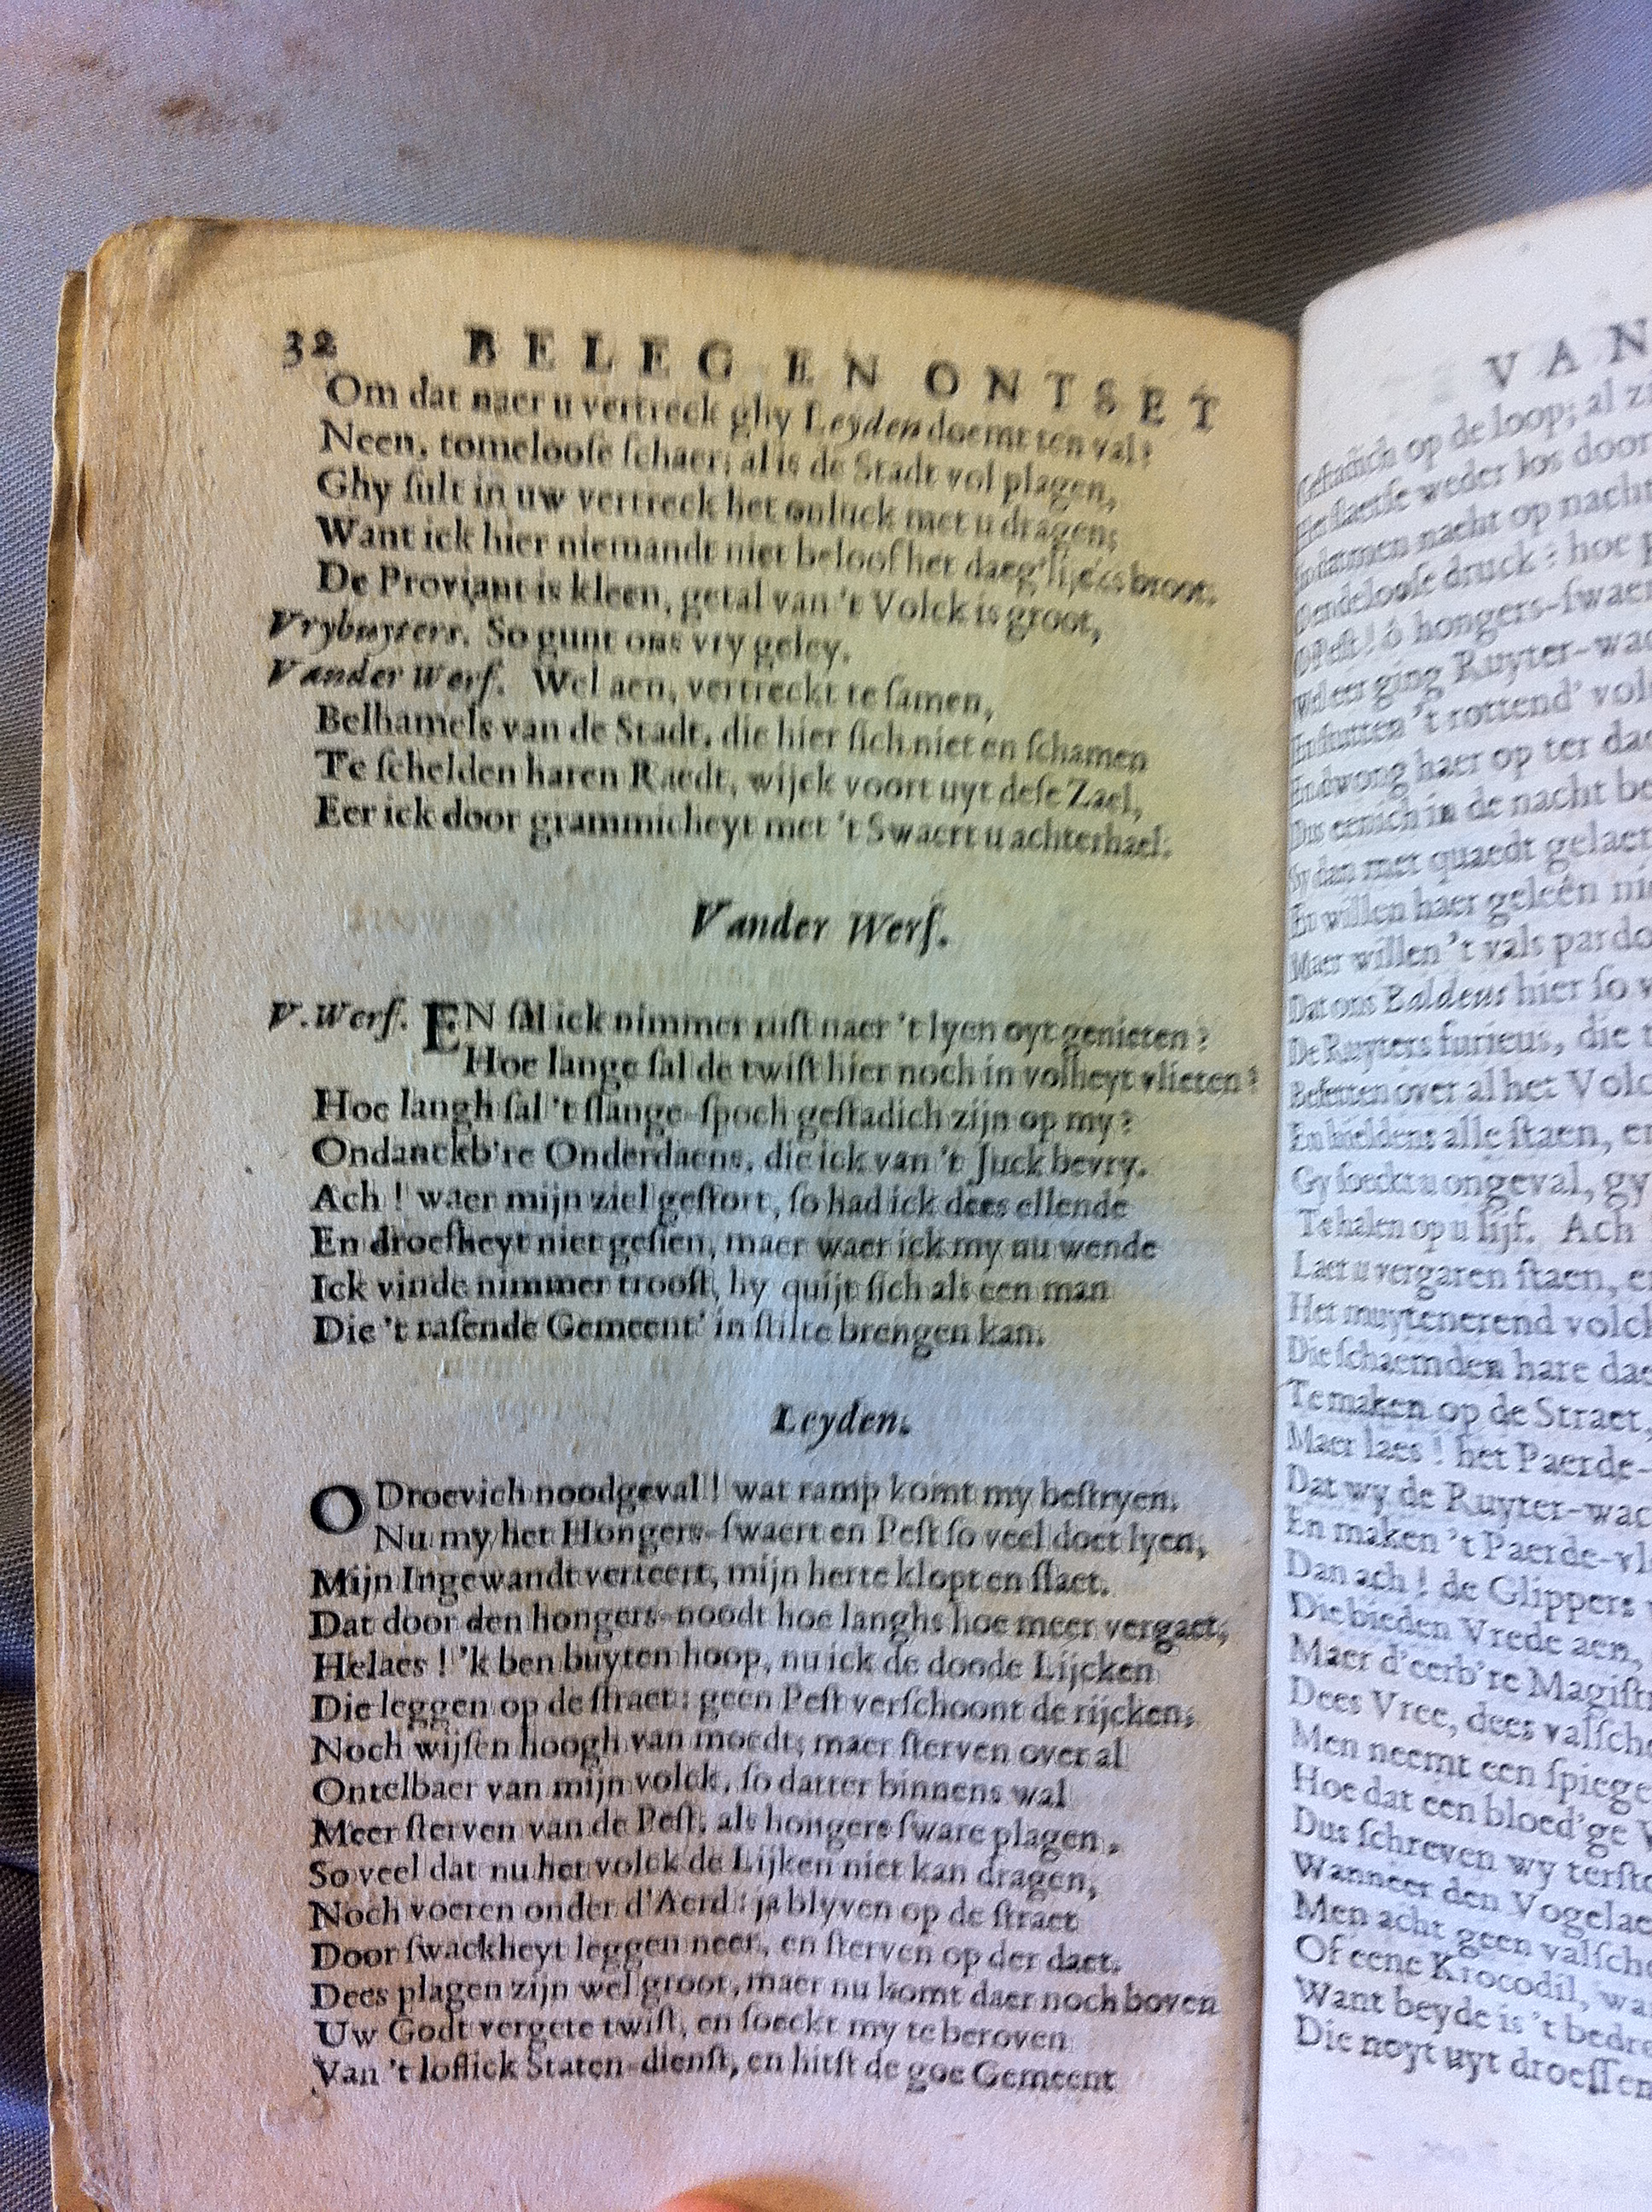 32 BELEG EN ONTSET
Om dat naer u vertreck ghy Leyden doemt ten val?
Neen, tomeloose schaer; al is de Stadt vol plagen,
Ghy sult in uw vertreck het onluck met u dragen;
Want ick hier niemandt niet beloof het daeg'lijcks broot.
De Proviant is kleen, getal van 't Volck is groot,
Vrybuyters. So gunt ons vry geley.
Vander Werf. Wel aen, vertreckt te samen,
Belhamels van de Stadt, die hier sich niet en schamen
Te schelden haren Raedt, wijck voort uyt dese Zael,
Eer ick door grammicheyt met 't Swaert u achterhael.
Vander Werf.
V. Werf. EN sal ick nimmer rust naer 't lyen oyt genieten?
Hoe lange sal de twist hier noch in volheyt vlieten?
Hoe langh sal 't slange-spoch gestadich zijn op my?
Ondanckb're Onderdaens, die ick van 't Juck bevry.
Ach! waer mijn ziel gestort, so had ick dees ellende
En droefheyt niet gesien, maer waer ick my nu wende
Ick vinde nimmer troost, hy quijt sich als een man
Die 't rasende Gemeent' in stilte brengen kan.
Leyden.
O Droevich noodgeval! wat ramp komt my bestryen.
Nu my het Hongers-swaert en Pest so veel doet lyen,
Mijn Ingewandt verteert, mijn herte klopt en slaet.
Dat door den hongers-noodt hoe langhs hoe meer vergaet,
Helaes! 'k ben buyten hoop, nu ick de doode Lijcken
Die leggen op de straet: geen Pest verschoont de rijcken,
Noch wijsen hoogh van moedt; maer sterven over al
Ontelbaer van mijn volck, so datter binnens wal
Meer sterven van de Pest, als hongers sware plagen,
So veel dat nu het volck de Lijken niet kan dragen,
Noch voeren onder d'Aerd: ja blyven op de straet
Door swackheyt leggen neer, en sterven op der daet.
Dees plagen zijn wel groot, maer nu komt daer noch boven
Uw Godt vergete twist, en soeckt my te beroven
Van 't loflick Staten-dienst, en hitst de goe Gemeent
VAN
Gestadich op de loop; al
weder los door
nacht op nacht
druck: hoe
ô Pest! ô hongers-swaer
Wel eer ging Ruyter-wa
't rottend' vol
En dwong haer op ter da
Dus eenich in de nacht be
Sy dan met quaedt gelaet
En willen haer geleên ni
Maer willen 't vals pardo
Dat ons Baldeus hier so v
De Ruyters furieus, die
Besetten over al het Volc
En hieldens alle staen, e
Gy soeckt u ongeval, gy
Te halen op u lijf. Ach
Laet u vergaren staen, e
Het muytenerend volck
Die schaemden hare dae
Te maken op de Straet,
Maer laes! het Paerde-
Dat wy de Ruyter-wac
En maken 't Paerde-vl
Dan ach! de Glippers
Die bieden Vrede aen,
Maer d'eerb're Magistr
Dees Vree, dees valsche
Men neemt een spiege
Hoe dat een bloed'ge V
Dus schreven wy terst
Wanneer den Vogelae
Men acht geen valsche
Of eene Krocodil, wa
Want beyde is 't bedr
Die noyt uyt droeff en